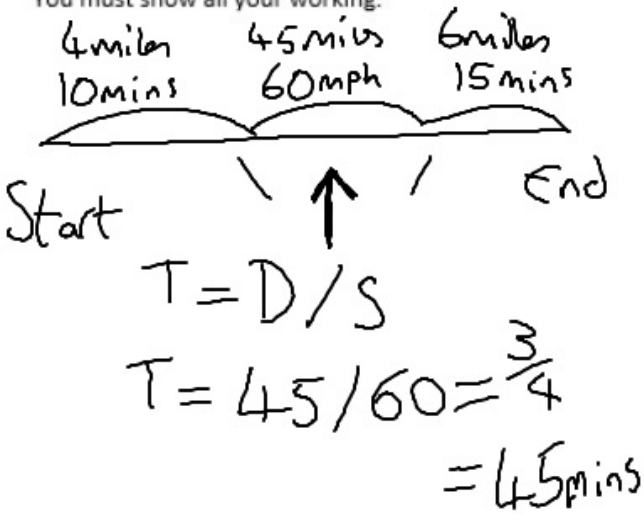 You must show all your working.
4miles 45miles 6miles
10mins 60mph 15mins
Start End
T=D/S
T=45/60=3/4
=45mins